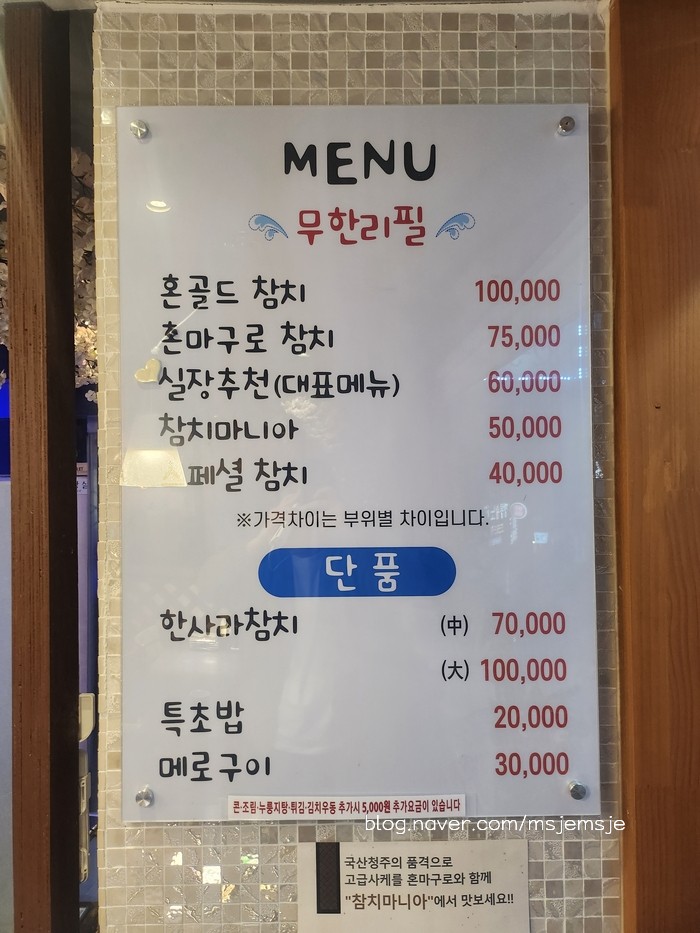 MENU
무한리필
혼골드 참치 100,000
혼마구로 참치 75,000
실장추천(대표메뉴) 60,000
참치마니아 50,000
페셜 참치 40,000
※가격차이는 부위별 차이입니다.
단품
한사라참치 (中) 70,000
(大) 100,000
특초밥 20,000
메로구이 30,000
콘·조림·누룽지탕·튀김·김치우동 추가시 5,000원 추가요금이 있습니다
blog.naver.com/msjemsje
국산청주의 품격으로
고급사케를 혼마구로와 함께
"참치마니아"에서 맛보세요!!